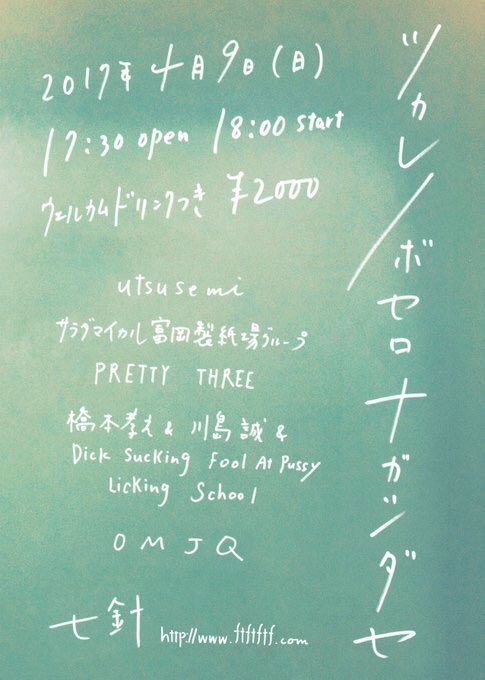 ツカレノボセロナガッツダセ
2017年4月9日(日)
17:30 open 18:00 start
ウェルカムドリンクつき ¥2000
utsusemi
サラダマイカル富岡製紙場グループ
PRETTY THREE
橋本孝之 & 川島誠 &
Dick Sucking Fool At Pussy
Licking School
OMJQ
七針 http://www.ftftftf.com